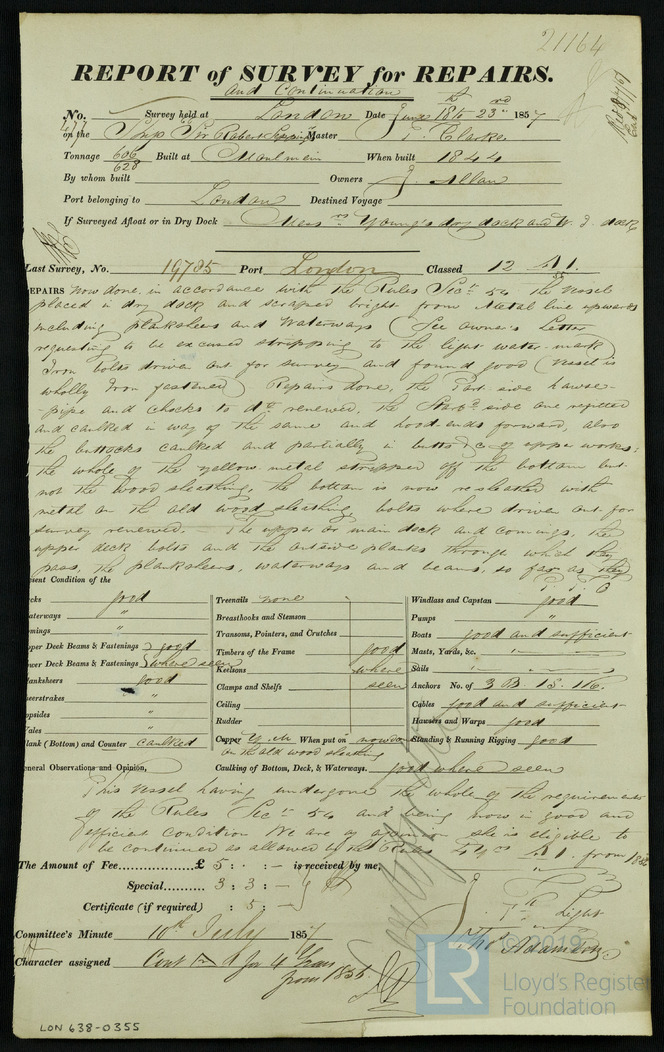 21164
REPORT of SURVEY for REPAIRS.
And Continuation
No. Survey held at London Date June 18th 23rd 1857
on the Ship Sir Robert Sepping Master T. Clarke
Tonnage 606 Built at Moulmein When built 1844
628
By whom built Owners J. Allan
Port belonging to London Destined Voyage
If Surveyed Afloat or in Dry Dock Messrs Young's dry dock and W. I. dock
Last Survey, No. 19785 Port London Classed 12 A1.
55
EPAIRS now done, in accordance with the Rules Sect. 54 The vessel
placed in dry dock and scraped bright from metal line upwards
including planksheers and Waterways (See owner's Letter
requesting to be excused stripping to the light water-mark
Iron bolts driven out for survey and found good (Vessel is
wholly Iron fastened) Repairs done, the Port side hawse-
-pipe and chocks to do. renewed, the Starbd. side one refitted
and caulked in way of the same and hood ends forward, also
the buttocks caulked and partially in butts &c of upper works:
the whole of the yellow metal stripped off the bottom but
not the wood sheathing, the bottom is now resheathed with
metal on the old wood sheathing, bolts where driven out for
survey renewed. The upper or main deck and comings, the
upper deck bolts and the outside planks through which they
pass, the planksheers, waterways and beams, so far as they
P. T. O
esent Condition of the
ecks good Treenails none Windlass and Capstan good
aterways " Breasthooks and Stemson Pumps "
omings " Transoms, Pointers, and Crutches Boats good and sufficient
pper Deck Beams & Fastenings good Timbers of the Frame good Masts, Yards, &c. "
ower Deck Beams & Fastenings where seen Keelsons where Sails "
lanksheers good Clamps and Shelfs seen Anchors No. of 3 B 1 S. 1 K.
heerstrakes " Ceiling Cables good and sufficient
opsides " Rudder Hawsers and Warps good
Vales " Copper Y. M. When put on now done Standing & Running Rigging good
on the old wood sheathing
lank (Bottom) and Counter caulked Caulking of Bottom, Deck, & Waterways. good where seen
eneral Observations and Opinion,
This vessel having undergone the whole of the requirements
of the Rules Sect. 54 and being now in good and
efficient condition We are of opinion she is eligible to
be continued as allowed by the Rules A1. from 1856
The Amount of Fee £ 5 : . : – is received by me,
Special 3 : 3 : –
Certificate (if required) : 5 : –
T. Light
Thos Adamson
Committee's Minute 10th July 1857
Character assigned Cont A1 for 4 Years
from 1856.
LON 638-0355
© 2019
LR
Lloyd's Register
Foundation